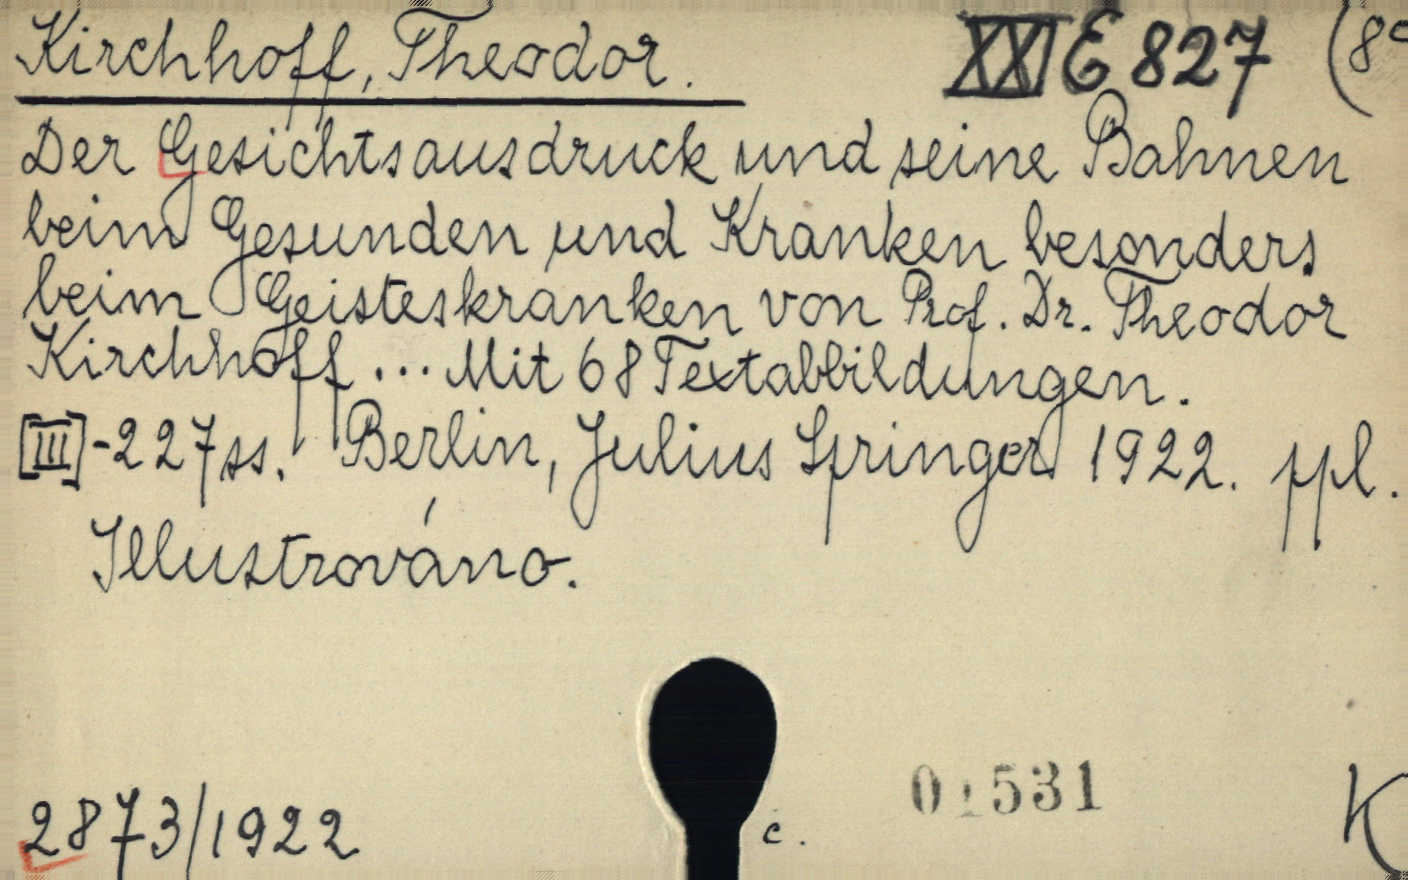 Kirchhoff, Theodor. XXI E 827 (8°
Der Gesichtsausdruck und seine Bahnen
beim Gesunden und Kranken besonders
beim Geisteskranken von Prof. Dr. Theodor
Kirchhoff ... Mit 68 Textabbildungen.
[III]-227 ss. Berlin, Julius Springer 1922. ppl.
Illustrováno.
01531
K
2873/1922
č.